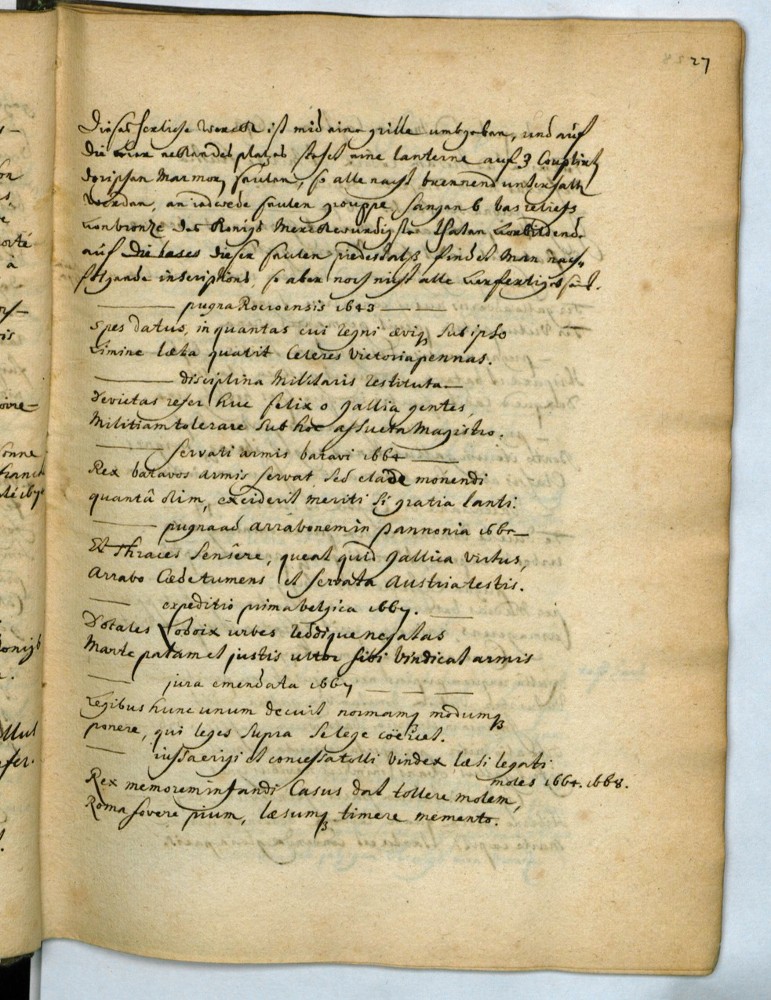 27
Dieses herliche werck ist mid eine grille umbgeben, und auf
die vier ecken des plazes stehet eine lanterne auf 3
dorischen Marmor seulen, so alle nacht brennend unterhalten
werden, an iedwede seulen grouppe hangen 6 bas reliefs
von bronze des Königs Merckwürdigste thaten vorbildend.
auf die bases dieser seulen piedestals findet man nach-
folgende inscriptions, so aber noch nicht alle verfertiget sind.
pugna Rocroensis 1643
Spes datus, in quantas cui regni ævique sub ipso
Limine læta quatit Celeres Victoria pennas.
disciplina Militaris restituta
Devictas refer huc felix o Gallia gentes,
Militiam tolerare sub hoc assueta Magistro.
servati armis batavi 1664
Rex batavos armis servat, sed clade monendi
quantâ olim, exciderit meriti si gratia tanti.
pugna ad Arrabonem in pannonia
Et Thraces sensêre, queat quid Gallica virtus,
Arrabo Cæde tumens et servata Austria testis.
expeditio prima belgica 1667.
Dotales Lodoix urbes reddique negatas
Marte palam et justis ultor sibi vindicat armis
jura emendata 1667
Legibus hunc unum decuit normamq modumq
ponere, qui leges supra se lege coërcet.
jussa erigi et concessa tolli vindex læsi legati
moles 1664. 1668.
Rex memorem infandi Casus dat tollere molem,
Roma fovere pium, læsumq timere memento.